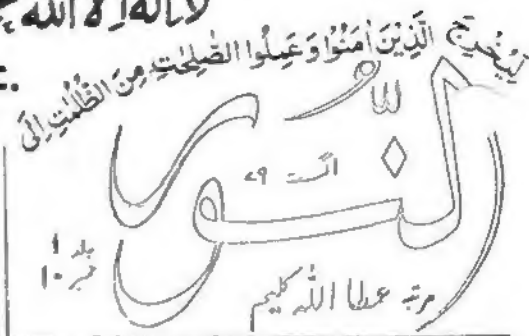 لا اله الا الله
لِيُخْرِجَ الَّذِيْنَ اٰمَنُوْا وَعَمِلُوا الصّٰلِحٰتِ مِنَ الظُّلُمٰتِ اِلَى
النّور
اگست ۷۹
جلد ۱
نمبر ۱۰
مرتبہ عطا اللہ کلیم